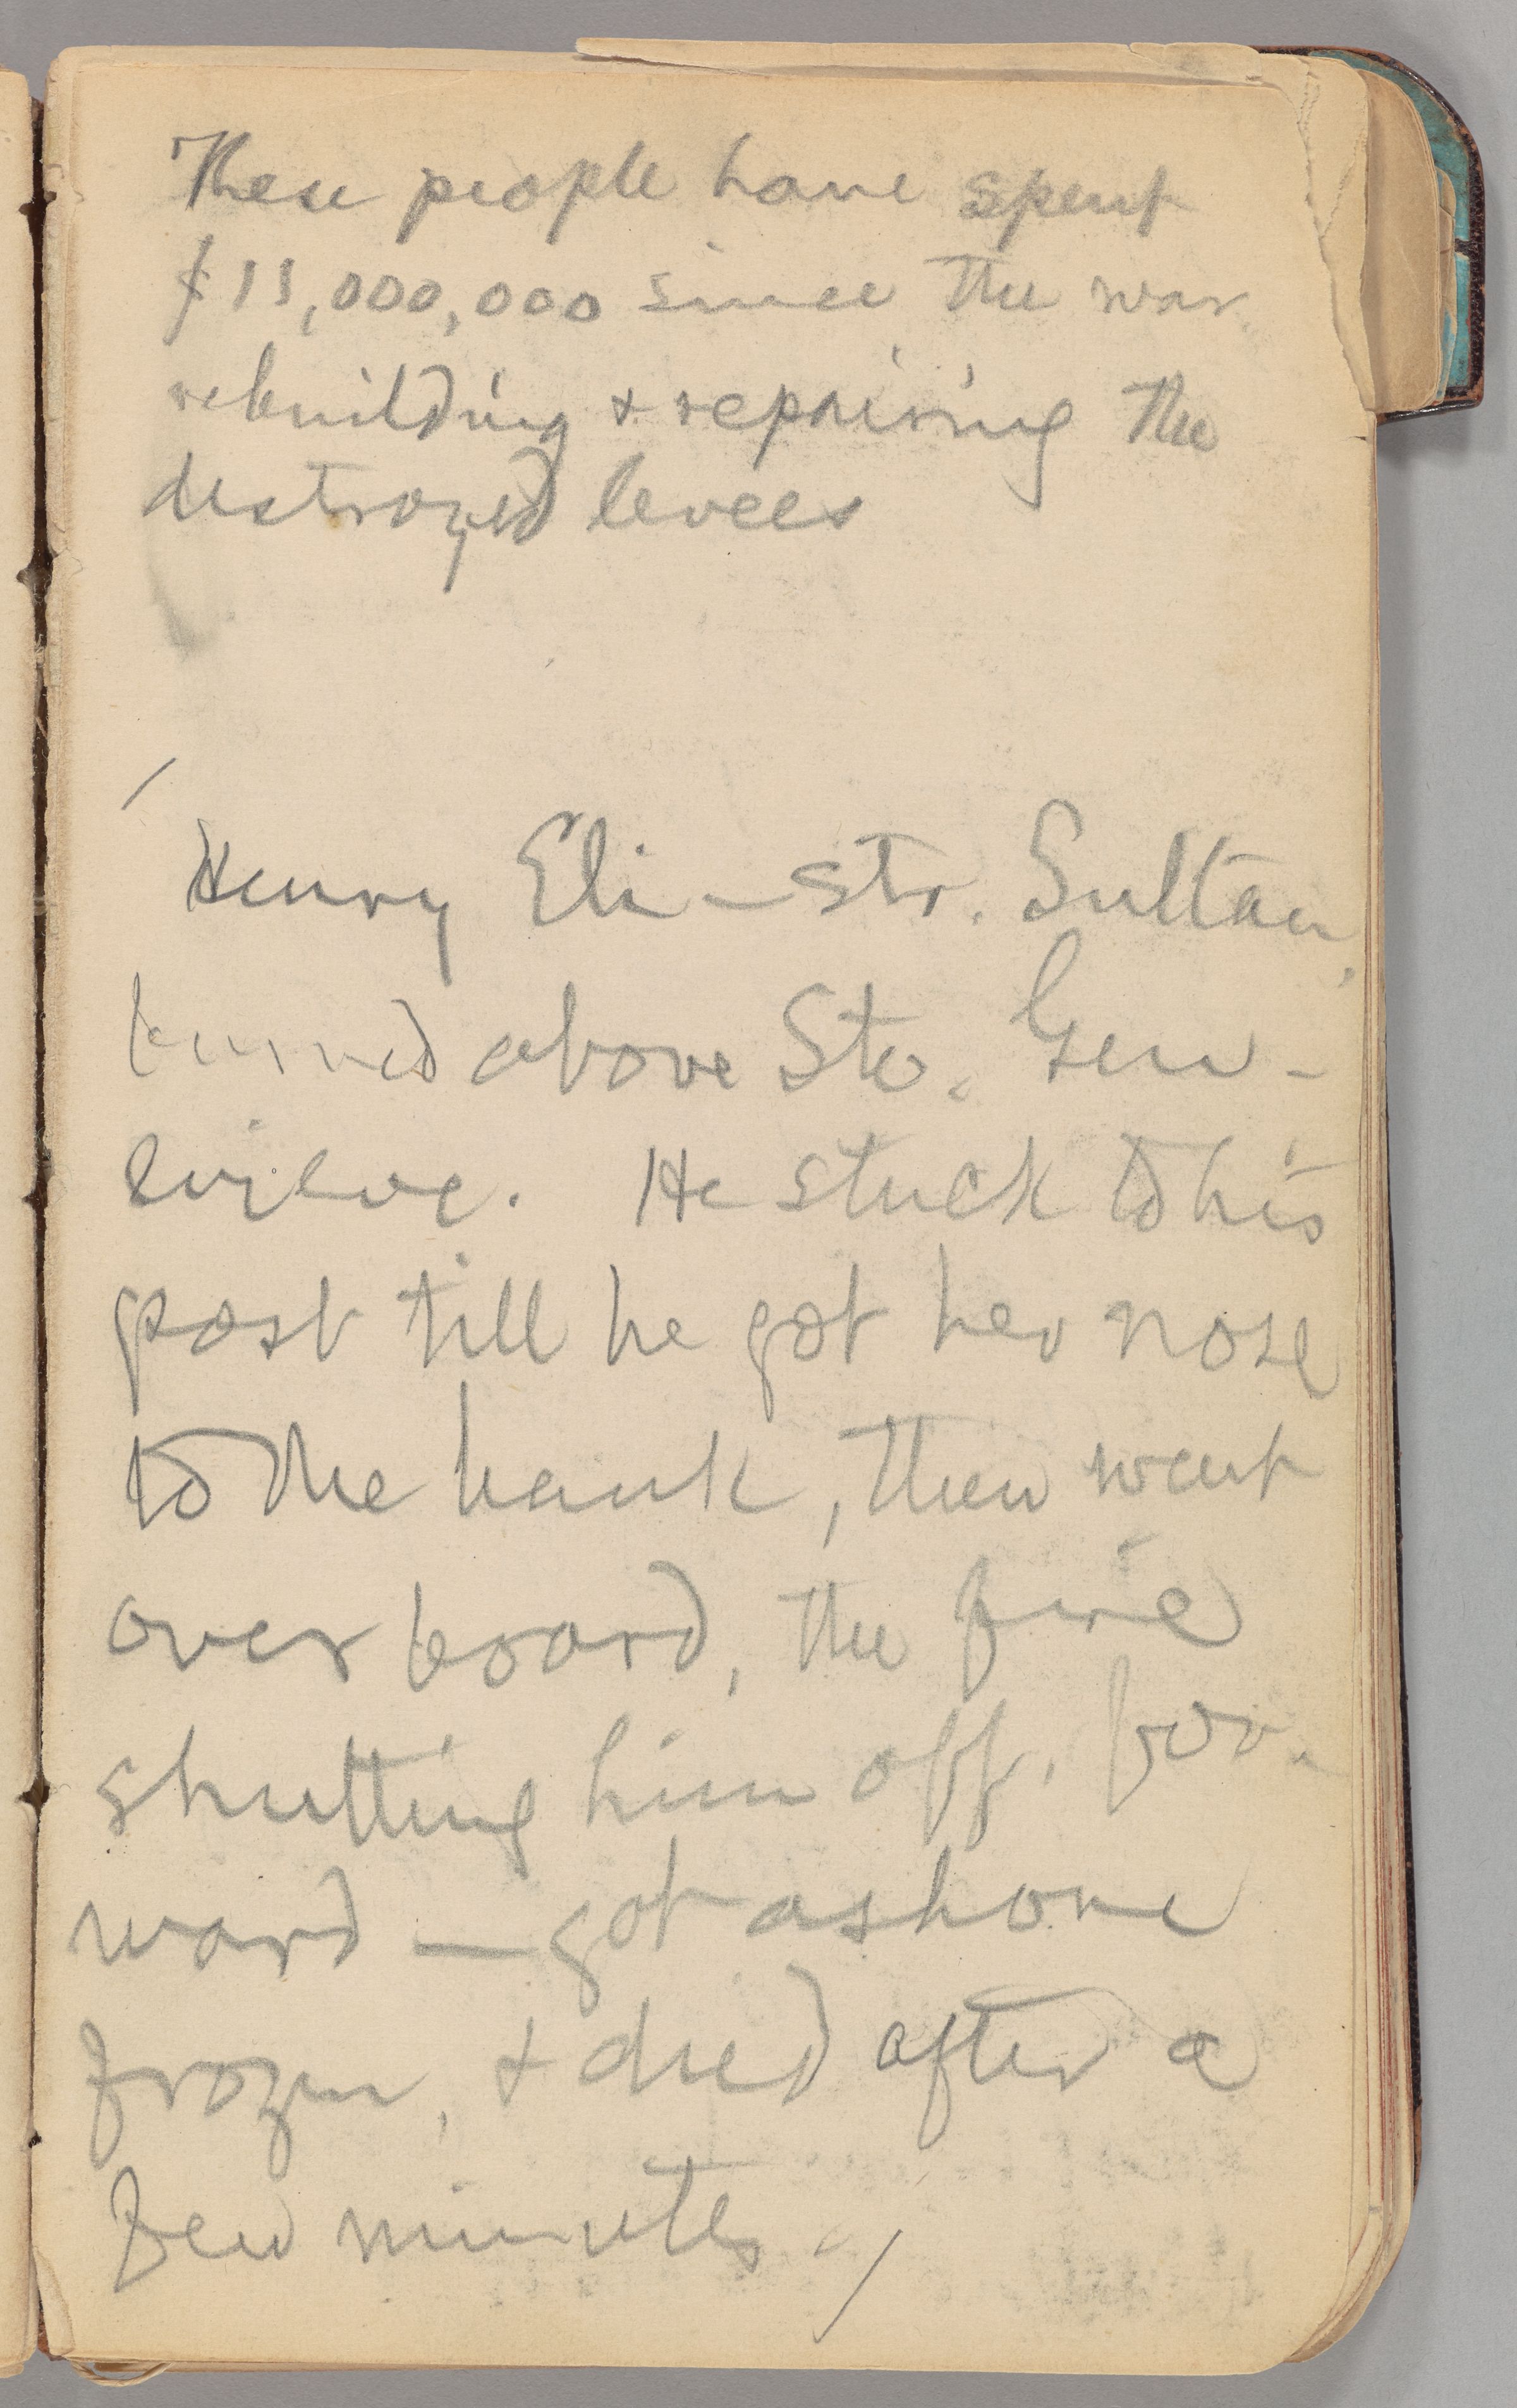 These people have spent
$11,000,000 since the war
rebuilding & repairing the
destroyed levees
Henry Eli — Str. Sultan,
burned above Ste. Gen-
evieve. He stuck to his
post till he got her nose
to the bank, then went
overboard, the fire
shutting him off, for-
ward — got ashore
frozen, & died after a
few minutes.